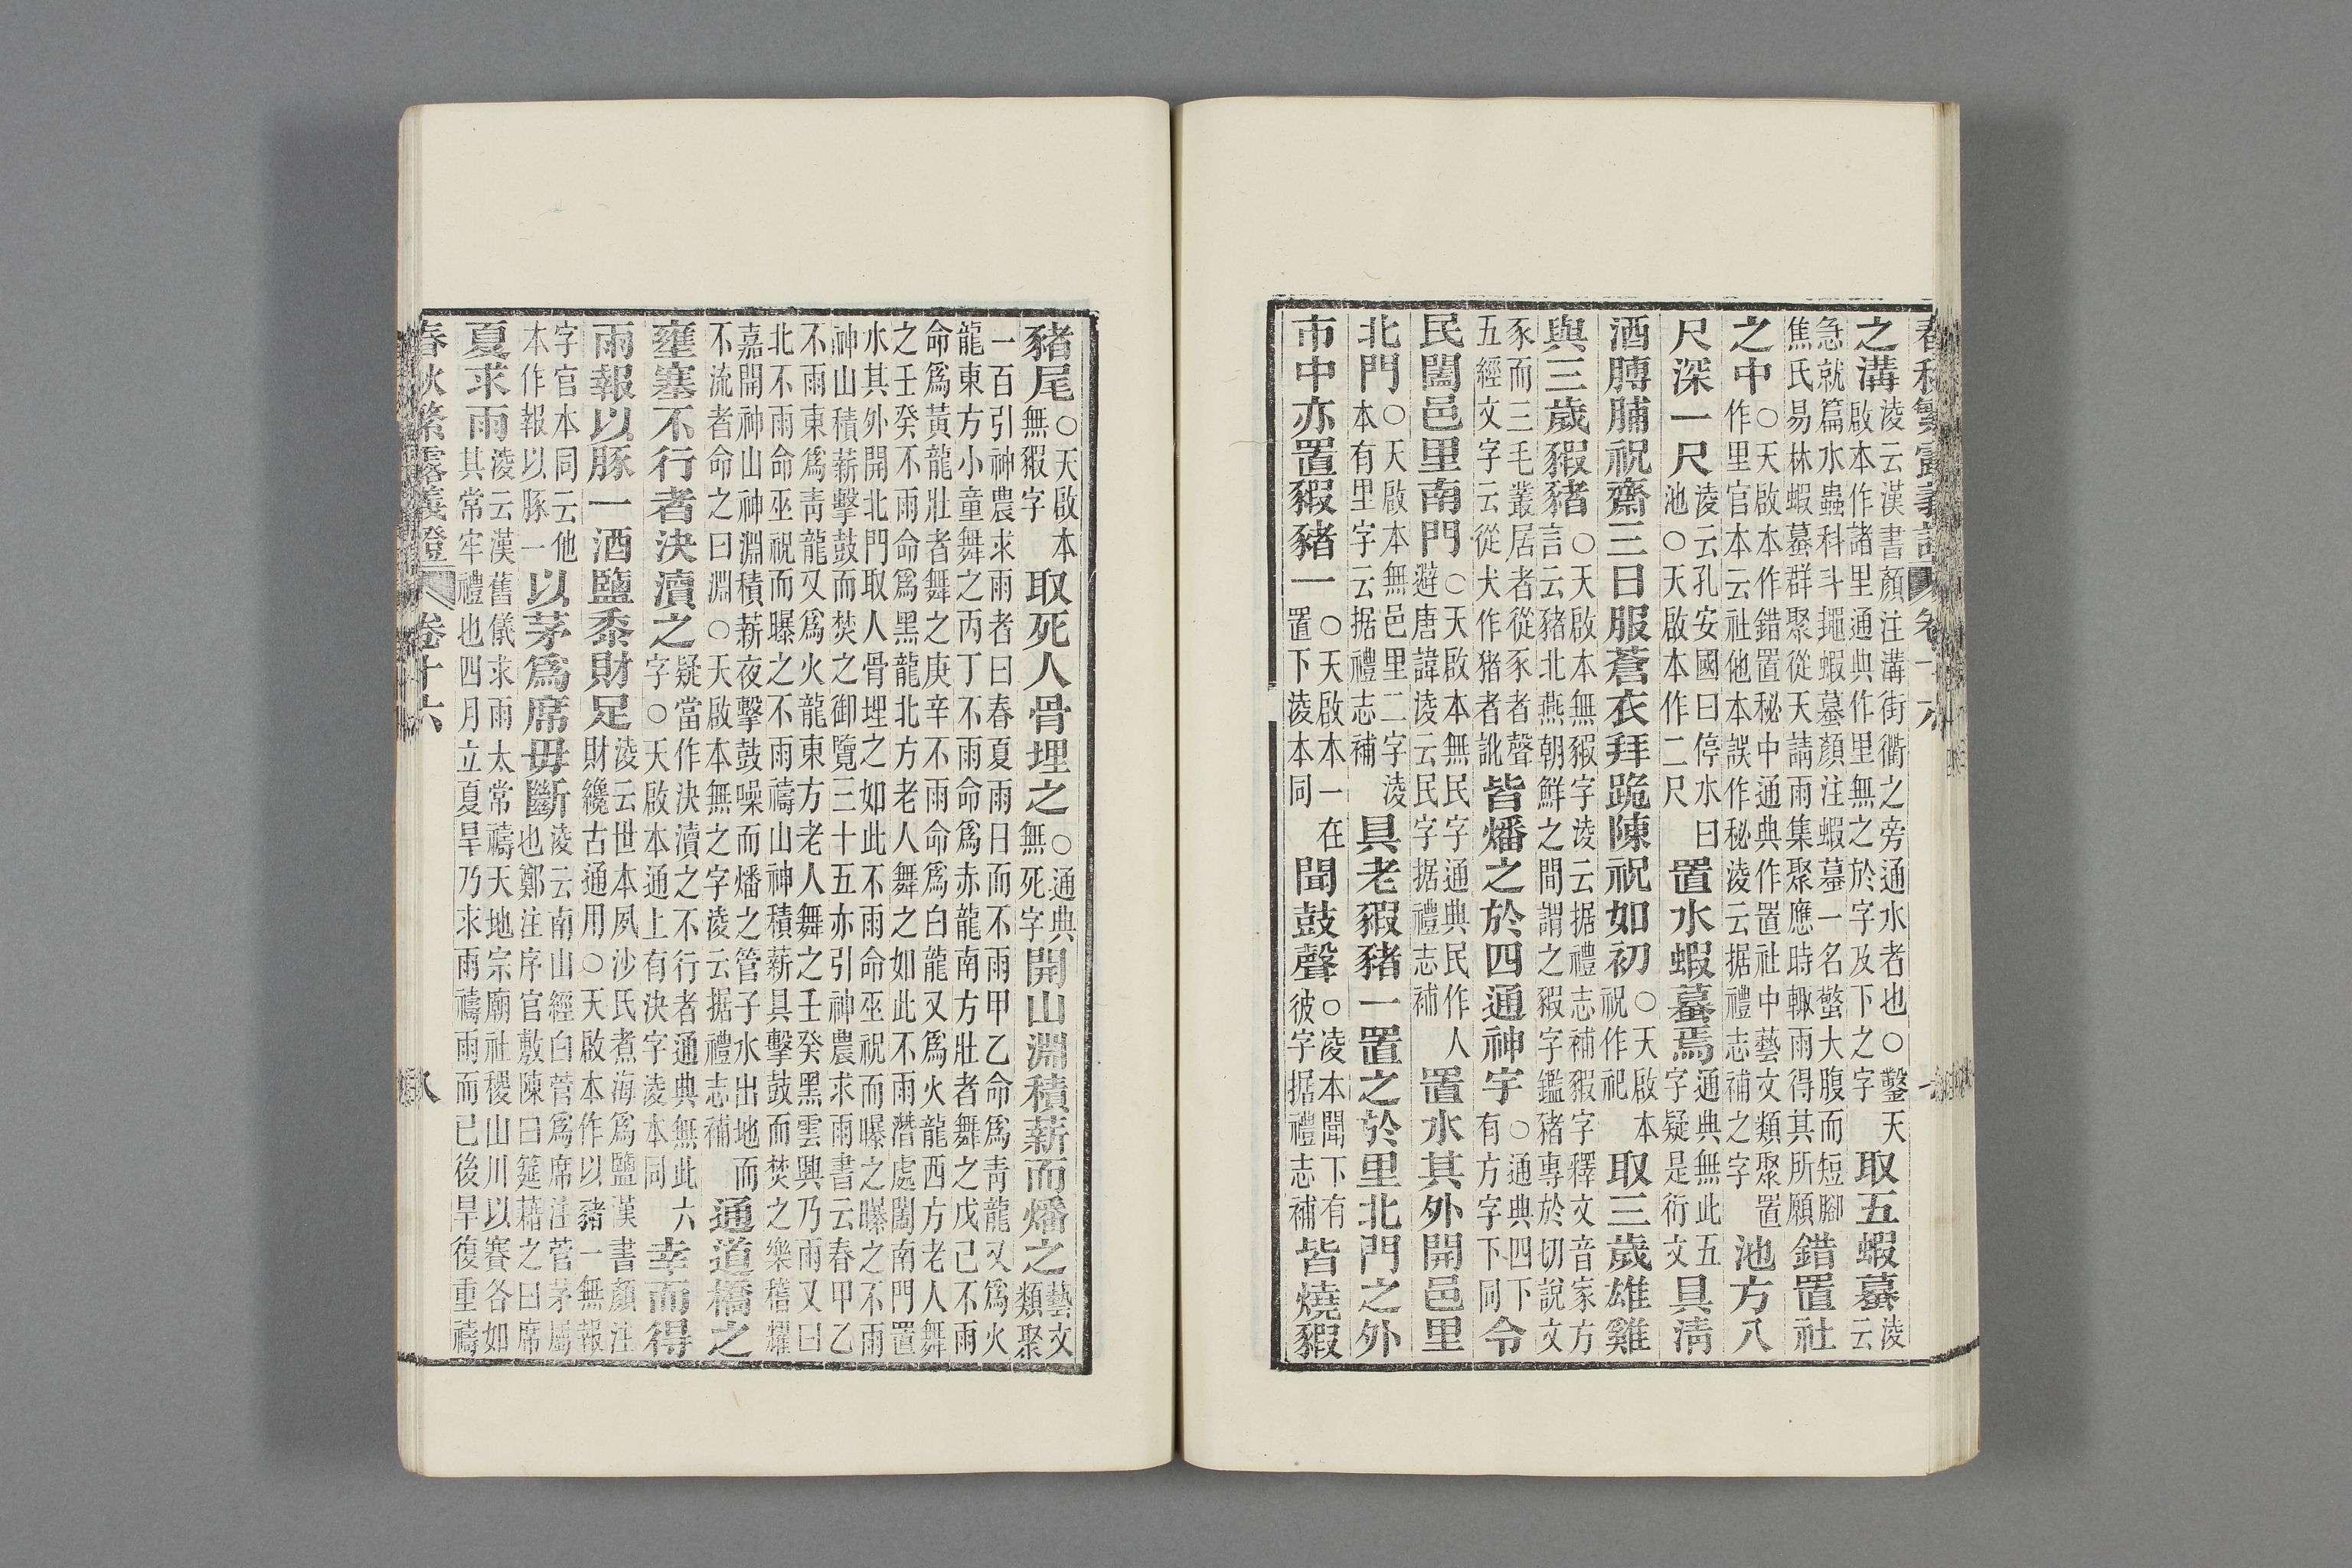 春秋繁露義證 卷十六
之溝淩云漢書顏注溝街衢之旁通水者也○鑿天啟本作諸里通典作里無之於字及下之字取五蝦蟇淩云
急就篇水蟲科斗䵷蝦蟇顏注蝦蟇一名螫大腹而短腳焦氏易林蝦蟇群聚從天請雨集聚應時輒雨得其所願錯置社
之中○天啟本作錯置秘中通典作置社中藝文類聚置作里官本云社他本誤作秘淩云据禮志補之字池方八
尺深一尺淩云孔安國曰停水曰池○天啟本作二尺置水蝦蟇焉通典無此五字疑是衍文具清
酒膊脯祝齋三日服蒼衣拜跪陳祝如初○天啟本祝作祀取三歲雄雞
與三歲豭豬○天啟本無豭字淩云据禮志補豭字釋文音家方言云豬北燕朝鮮之間謂之豭字鑑豬專於切說文
豕而三毛叢居者從豕者聲五經文字云從犬作猪者訛皆燔之於四通神宇○通典四下有方字下同令
民闔邑里南門○天啟本無民字通典民作人避唐諱淩云民字据禮志補置水其外開邑里
北門○天啟本無邑里二字淩本有里字云据禮志補具老豭豬一置之於里北門之外
市中亦置豭豬一○天啟本一在置下淩本同聞鼓聲○淩本聞下有彼字据禮志補皆燒豭
豬尾○天啟本無豭字取死人骨埋之○通典無死字開山淵積薪而燔之藝文類聚
一百引神農求雨者曰春夏雨日而不雨甲乙命爲青龍又爲火龍東方小童舞之丙丁不雨命爲赤龍南方壯者舞之戊己不雨
命爲黃龍壯者舞之庚辛不雨命爲白龍又爲火龍西方老人舞之壬癸不雨命爲黑龍北方老人舞之如此不雨潛處闔南門置
水其外開北門取人骨埋之如此不雨命巫祝而曝之曝之不雨神山積薪擊鼓而焚之御覽三十五亦引神農求雨書云春甲乙
不雨東爲青龍又爲火龍東方老人舞之壬癸黑雲興乃雨又曰北不雨命巫祝而曝之不雨禱山神積薪具擊鼓而焚之樂稽耀
嘉開神山神淵積薪夜擊鼓噪而燔之管子水出地而不流者命之曰淵○天啟本無之字淩云据禮志補通道橋之
壅塞不行者決瀆之疑當作決瀆之不行者通典無此六字○天啟本通上有決字淩本同幸而得
雨報以豚一酒鹽黍財足淩云世本夙沙氏煮海爲鹽漢書顏注財纔古通用○天啟本作以豬一無報
字官本同云他本作報以豚一以茅爲席毋斷淩云南山經白菅爲席注菅茅屬也鄭注序官敷陳曰筵藉之曰席
夏求雨淩云漢舊儀求雨太常禱天地宗廟社稷山川以賽各如其常牢禮也四月立夏旱乃求雨禱雨而已後旱復重禱
春秋繁露義證 卷十六 八